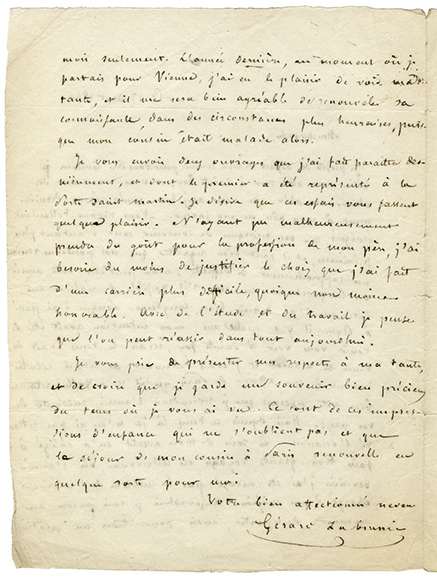 mois seulement. L'année dernière, au moment où je
partais pour Vienne, j'ai eu le plaisir de voir ma
tante, et il me sera bien agréable de renouveler sa
connaissance dans des circonstances plus heureuses, puis-
que mon cousin était malade alors.
Je vous envoie deux ouvrages que j'ai fait paraître der-
nièrement, et dont le premier a été représenté à la
Porte Saint martin. Je désire que ces essais vous fassent
quelque plaisir. N'ayant pu malheureusement
prendre du goût pour la profession de mon père, j'ai
besoin du moins de justifier le choix que j'ai fait
d'une carrière plus difficile, quoique non moins
honorable. Avec de l'étude et du travail je pense
que l'on peut réussir dans tout aujourd'hui.
Je vous prie de présenter mes respects à ma tante,
et de croire que je garde un souvenir bien précieux
du tems où je vous ai vu. Ce sont de ces impres-
sions d'enfance qui ne s'oublient pas et que
le séjour de mon cousin à Paris renouvelle en
quelque sorte pour moi.
Votre bien affectionné neveu
Gérard Labrunie